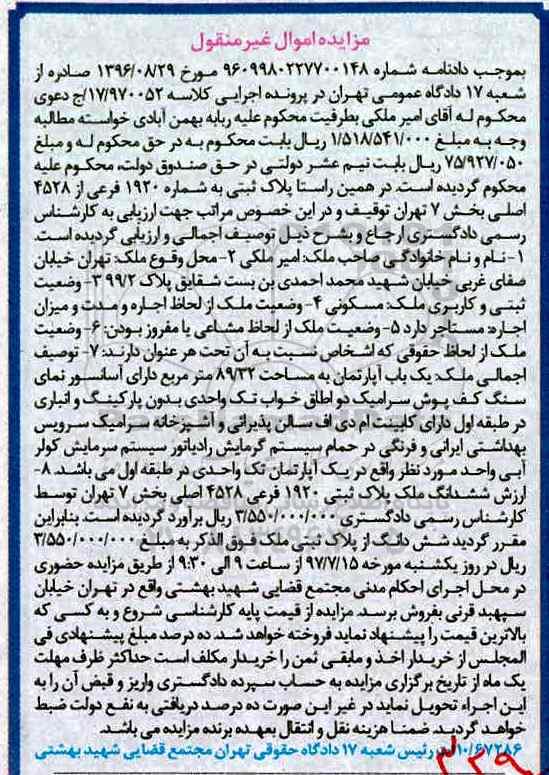 مزایده اموال غیر منقول
بموجب دادنامه شماره ۹۶۰۹۹۸۰۲۲۷۷۰۰۱۴۸ مورخ ۱۳۹۶/۰۸/۲۹ صادره از
شعبه ۱۷ دادگاه عمومی تهران در پرونده اجرایی کلاسه ۱۷/۹۷۰۰۵۲/ج دعوی
محکوم له آقای امیر ملکی بطرفیت محکوم علیه ربابه بهمن آبادی خواسته مطالبه
وجه به مبلغ ۱/۵۱۸/۵۴۱/۰۰۰ ریال بابت محکوم به در حق محکوم له و مبلغ
۷۵/۹۲۷/۰۵۰ ریال بابت نیم عشر دولتی در حق صندوق دولت، محکوم علیه
محکوم گردیده است. در همین راستا پلاک ثبتی به شماره ۱۹۲۰ فرعی از ۴۵۲۸
اصلی بخش ۷ تهران توقیف و در این خصوص مراتب جهت ارزیابی به کارشناس
رسمی دادگستری ارجاع و بشرح ذیل توصیف اجمالی و ارزیابی گردیده است.
۱- نام و نام خانوادگی صاحب ملک: امیر ملکی ۲- محل وقوع ملک: تهران خیابان
صفای غربی خیابان شهید محمد احمدی بن بست شقایق پلاک ۹۹/۲ ۳- وضعیت
ثبتی و کاربری ملک: مسکونی ۴- وضعیت ملک از لحاظ اجاره و مدت و میزان
اجاره: مستاجر دارد ۵- وضعیت ملک از لحاظ مشاعی یا مفروز بودن: ۶- وضعیت
ملک از لحاظ حقوقی که اشخاص نسبت به آن تحت هر عنوان دارند: ۷- توصیف
اجمالی ملک: یک باب آپارتمان به مساحت ۸۹/۳۲ متر مربع دارای آسانسور نمای
سنگ کف پوش سرامیک دو اطاق خواب تک واحدی بدون پارکینگ و انباری
در طبقه اول دارای کابینت ام دی اف سالن پذیرائی و آشپزخانه سرامیک سرویس
بهداشتی ایرانی و فرنگی در حمام سیستم گرمایش رادیاتور سیستم سرمایش کولر
آبی واحد مورد نظر واقع در یک آپارتمان تک واحدی در طبقه اول می باشد. ۸-
ارزش ششدانگ ملک پلاک ثبتی ۱۹۲۰ فرعی ۴۵۲۸ اصلی بخش ۷ تهران توسط
کارشناس رسمی دادگستری ۳/۵۵۰/۰۰۰/۰۰۰ ریال برآورد گردیده است. بنابراین
مقرر گردید شش دانگ از پلاک ثبتی ملک فوق الذکر به مبلغ ۳/۵۵۰/۰۰۰/۰۰۰
ریال در روز یکشنبه مورخه ۹۷/۷/۱۵ از ساعت ۹ الی ۹:۳۰ از طریق مزایده حضوری
در محل اجرای احکام مدنی مجتمع قضایی شهید بهشتی واقع در تهران خیابان
سپهبد قرنی بفروش برسد. مزایده از قیمت پایه کارشناسی شروع و به کسی که
بالاترین قیمت را پیشنهاد نماید فروخته خواهد شد. ده درصد مبلغ پیشنهادی فی
المجلس از خریدار اخذ و مابقی ثمن را خریدار مکلف است حداکثر ظرف مهلت
یک ماه از تاریخ برگزاری مزایده به حساب سپرده دادگستری واریز و قبض آن را به
این اجراء تحویل نماید در غیر این صورت ده درصد دریافتی به نفع دولت ضبط
خواهد گردید. ضمنا هزینه نقل و انتقال بعهده برنده مزایده می باشد.
۱۰/۶۷۲۸۶ رئیس شعبه ۱۷ دادگاه حقوقی تهران مجتمع قضایی شهید بهشتی